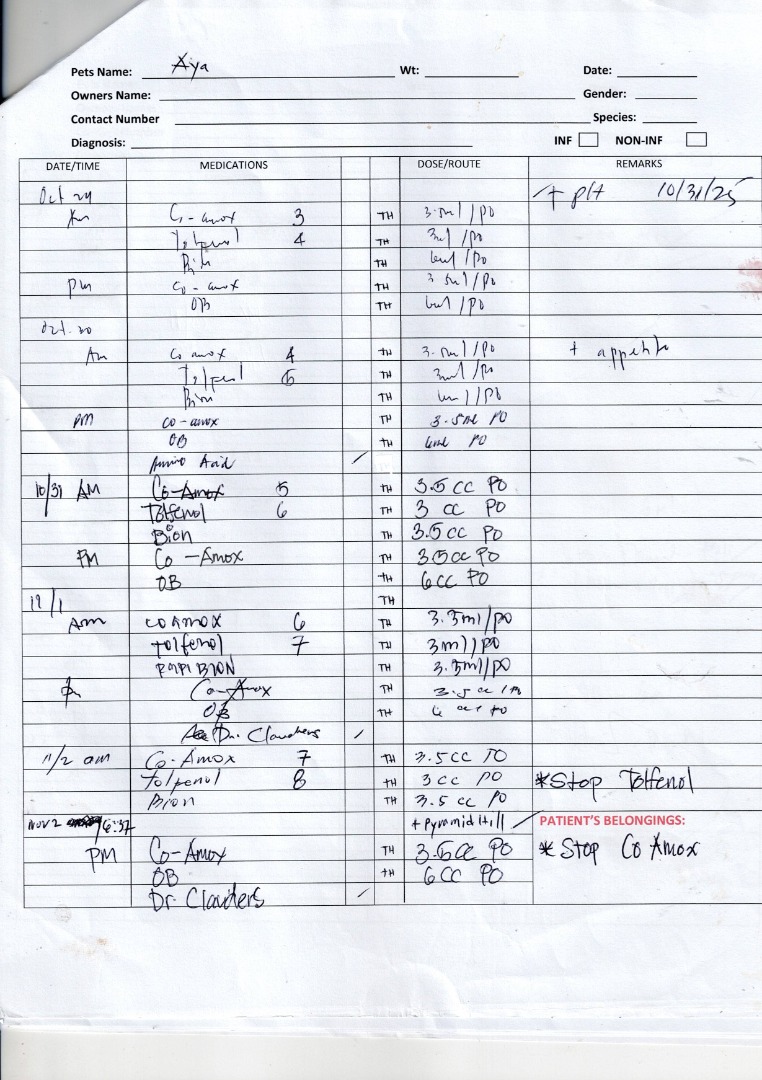 Pets Name: Aya Wt: Date:
Owners Name: Gender:
Contact Number Species:
Diagnosis: INF NON-INF
DATE/TIME MEDICATIONS DOSE/ROUTE REMARKS
Oct 29 + p/t 10/31/25
Am Co-amox 3 TH 3.5ml/po
Tolfenol 4 TH 3ml/po
Bion TH /po
pm Co-amox TH 3.5ml/po
OB TH 6ml/po
Oct. 30
Am Co amox 4 TH 3.5ml/po + appetite
Tolfenol 5 TH 3ml/po
Bion TH /po
pm co-amox TH 3.5ml PO
OB TH 6ml PO
Amino Acid /
10/31 AM Co-Amox 5 TH 3.5 cc PO
Tolfenol 6 TH 3 cc PO
Bion TH 3.5 cc PO
PM Co-Amox TH 3.5cc PO
OB TH 6cc PO
11/1 TH
Am co Amox 6 TH 3.5ml/po
tolfenol 7 TH 3ml/po
PAPI BION TH 3.5ml/po
Co-Amox TH 3.5 cc
OB TH 6 cc po
Dr. Clauders /
11/2 am Co-Amox 7 TH 3.5cc PO
tolfenol 8 TH 3cc PO *Stop Tolfenol
Bion TH 3.5 cc PO
NOV 2 /6:37 + Pyramid Hill / PATIENT'S BELONGINGS:
PM Co-Amox TH 3.5cc PO * Stop Co Amox
OB TH 6cc PO
Dr. Clauders /